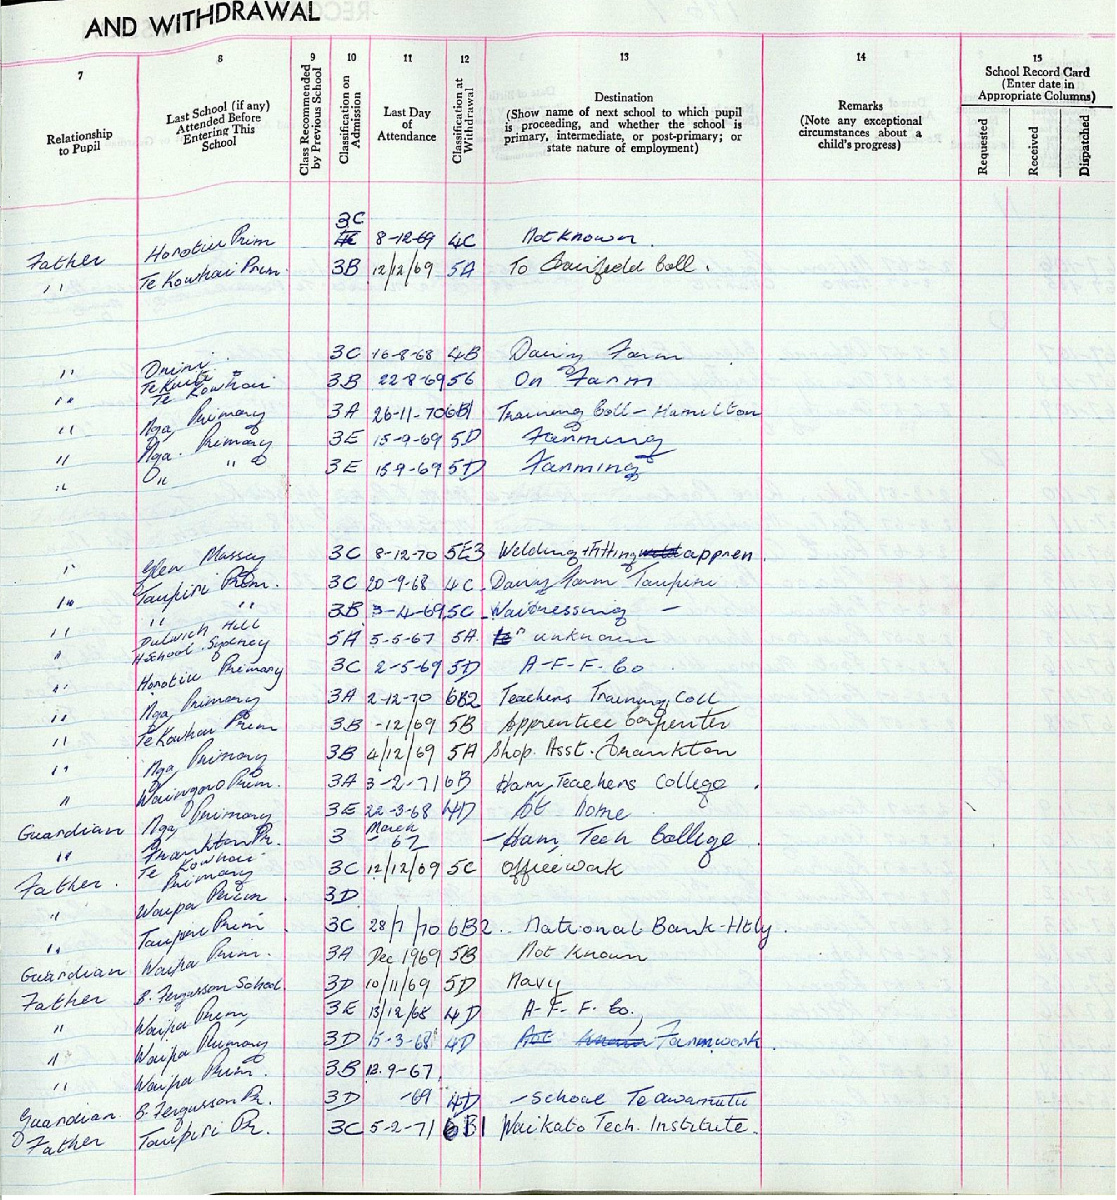 AND WITHDRAWAL
7 8 9 10 11 12 13 14 15
Relationship to Pupil
Last School (if any) Attended Before Entering This School
Class Recommended by Previous School
Classification on Admission
Last Day of Attendance
Classification at Withdrawal
Destination
(Show name of next school to which pupil is proceeding, and whether the school is primary, intermediate, or post-primary; or state nature of employment)
Remarks
(Note any exceptional circumstances about a child's progress)
School Record Card
(Enter date in Appropriate Columns)
Requested Received Dispatched
3C
Father Horotiu Prim 4C 8-12-69 4C Not Known.
" Te Kowhai Prim. 3B 12/12/69 5A To Coll.
" 3C 16-8-68 4B Dairy Farm
" Te Kuiti Te Kowhai 3B 22-8-69 5 On Farm
" Nga. Primary 3A 26-11-70 6B1 Training Coll - Hamilton
" Nga. Primary 3E 15-9-69 5D Farming
" " 3E 15-9-69 5D Farming
" Glen Massey 3C 8-12-70 5E3 Welding + Fitting appren.
" Taupiri Prim. 3C 20-9-68 4C Dairy farm Taupiri
" " 3B 3-4-69 5C Waitressing -
" Dulwich Hill H School Sydney 5A 5-5-67 5A unknown
" Horotiu Primary 3C 2-5-69 5D A-F-F. Co
" Nga Primary 3A 2-12-70 6B2 Teachers Training Coll
" Te Kowhai Prim 3B -12/69 5B Apprentice Carpenter
" Nga Primary 3B 4/12/69 5A Shop. Asst. Frankton
" Prim. 3A 3-2-71 6B Ham. Teachers College.
Guardian Nga Primary 3E 22-3-68 4D At home
" Frankton Pr. 3 March 67 - Ham. Tech College
Father. Te Kowhai Primary 3C 12/12/69 5C Office work
" Waipa Prim 3D
" Taupiri Prim 3C 28/7/70 6B2 National Bank - Htly.
Guardian Waipa Prim. 3A Dec 1969 5B Not Known
Father B. Fergusson School. 3D 10/11/69 5D Navy
" Waipa Prim 3E 13/12/68 4D A-F-F. Co.
" Waipa Primary 3D 15-3-68 4D Not known Farmwork.
" Waipa Prim. 3B 12.9-67.
Guardian B. Fergusson Pr. 3D -69 4D - School Te Awamutu
Father Taupiri Pr. 3C 5-2-71 6B1 Waikato Tech. Institute.